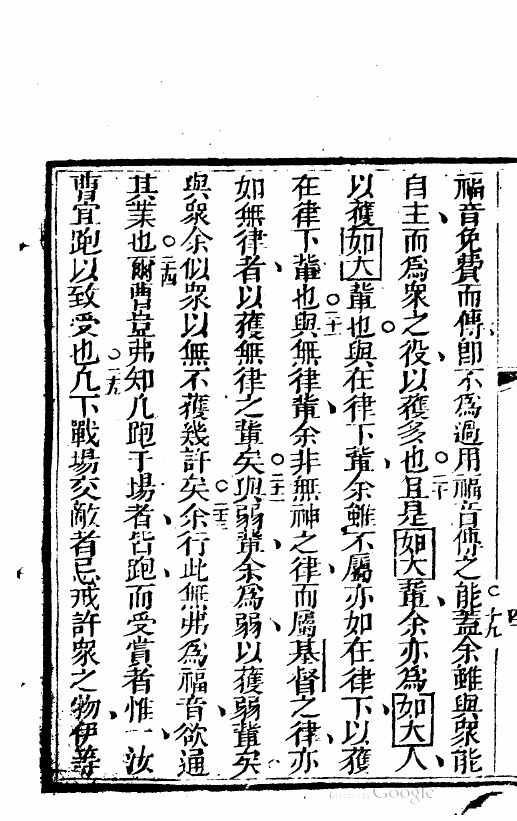 福音免費而傳、即不為過用福音傳之能。○十九蓋余雖與眾能
自主、而為眾之役、以獲多也。○二十且是如大輩、余亦為如大人、
以獲如大輩也。與在律下輩、余雖不屬、亦如在律下、以獲
在律下輩也。○二十一與無律輩、余非無神之律、而屬基督之律、亦
如無律者、以獲無律之輩矣。○二十二與弱輩、余為弱、以獲弱輩矣。
與眾余似眾、以無不獲幾許矣。○二十三余行此無弗為福音、欲通
其業也。○二十四爾曹豈弗知凡跑于場者、皆跑、而受賞者惟一、汝
曹宜跑以致受也。○二十五凡下戰場交敵者忌戒許眾之物、伊等
四
Google